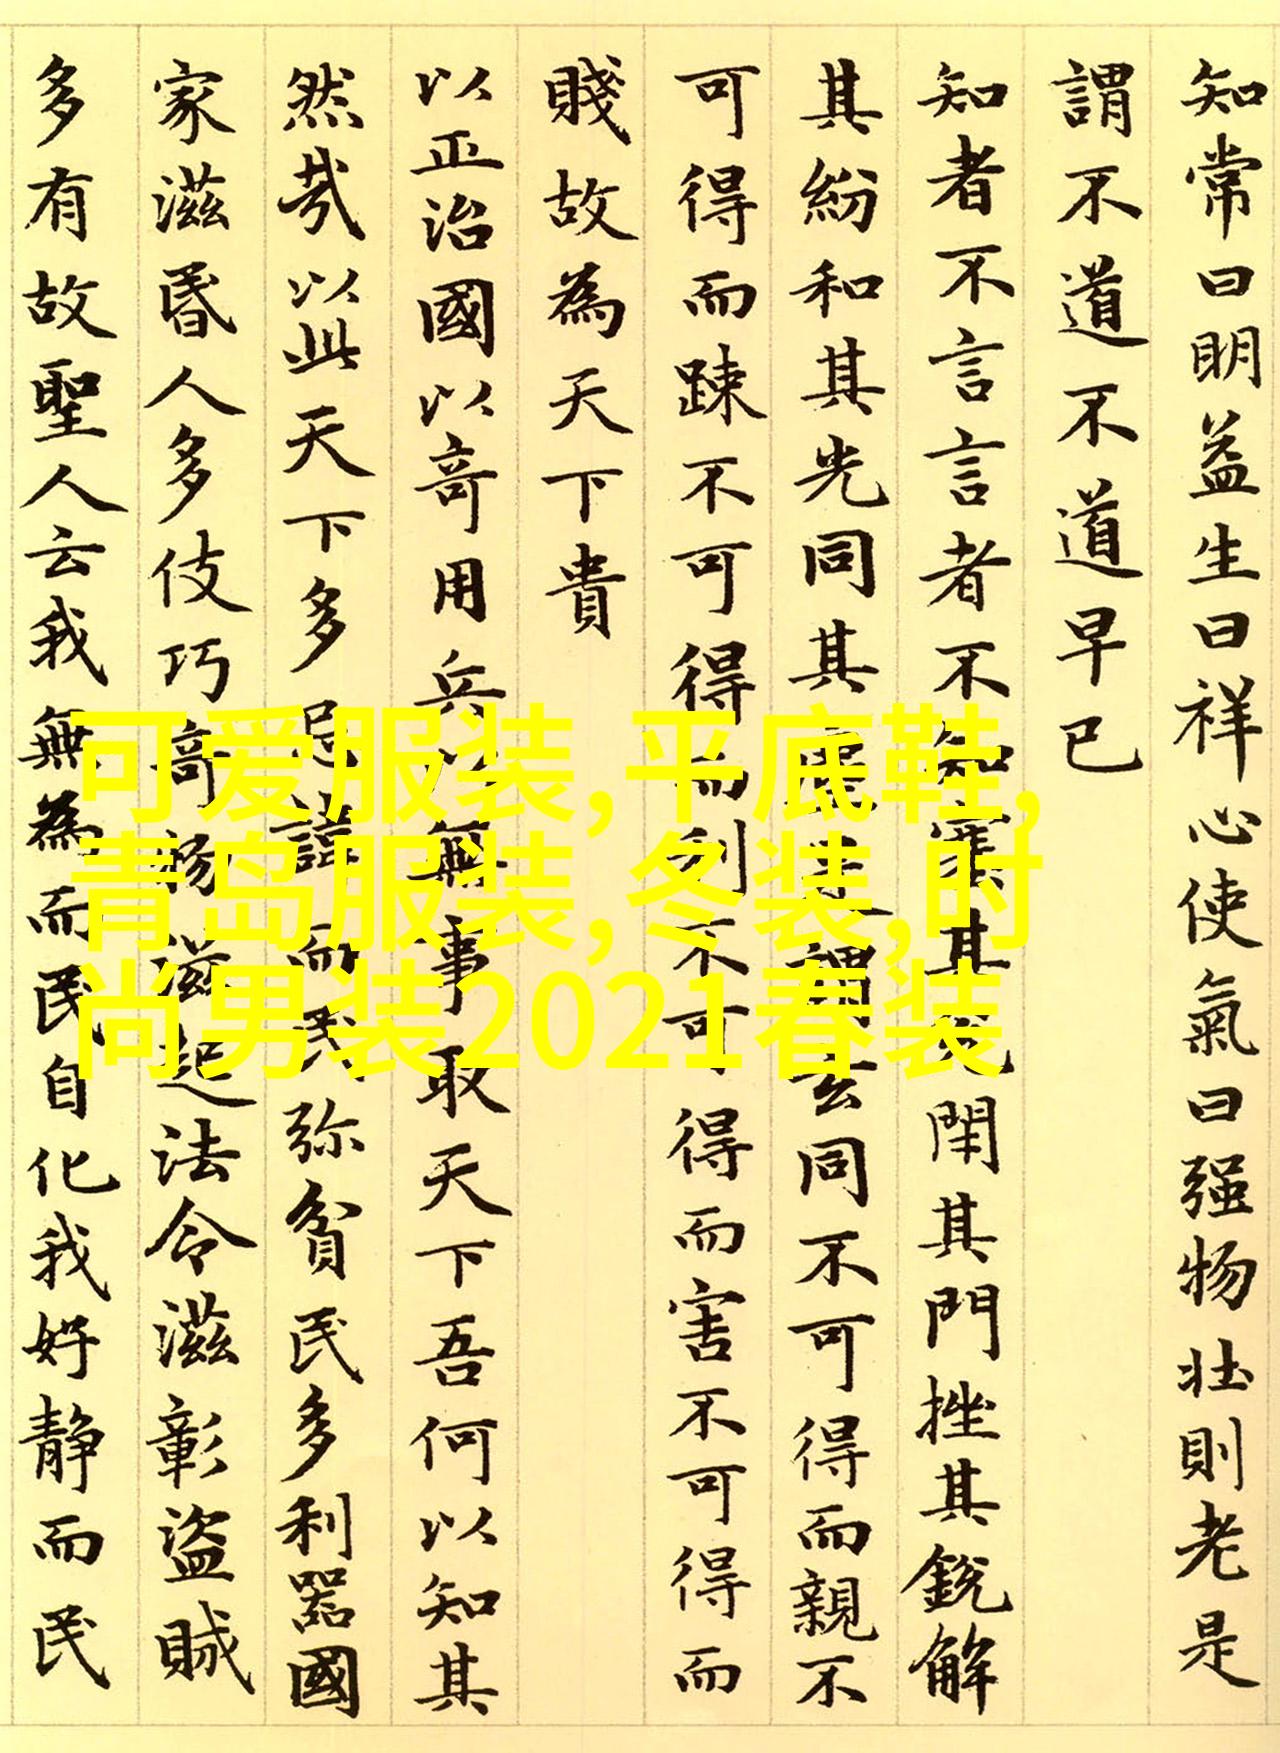 知常曰明益生曰祥心使氣曰强物壮則老是
謂不道不道早已
知者不言言者不知塞其兌閇其門挫其銳解
其紛和其光同其塵是謂玄同不可得而親不
可得而踈不可得而利不可得而害不可得而
賤故為天下貴
以正治國以竒用兵以無事取天下吾何以知其
然哉以此天下多忌諱而民弥貧民多利器國
家滋昬人多伎巧竒物滋起法令滋彰盜賊
多有故聖人云我無為而民自化我好静而民
可爱服装,平底鞋,
青岛服装,冬装,时
尚男装2021春装